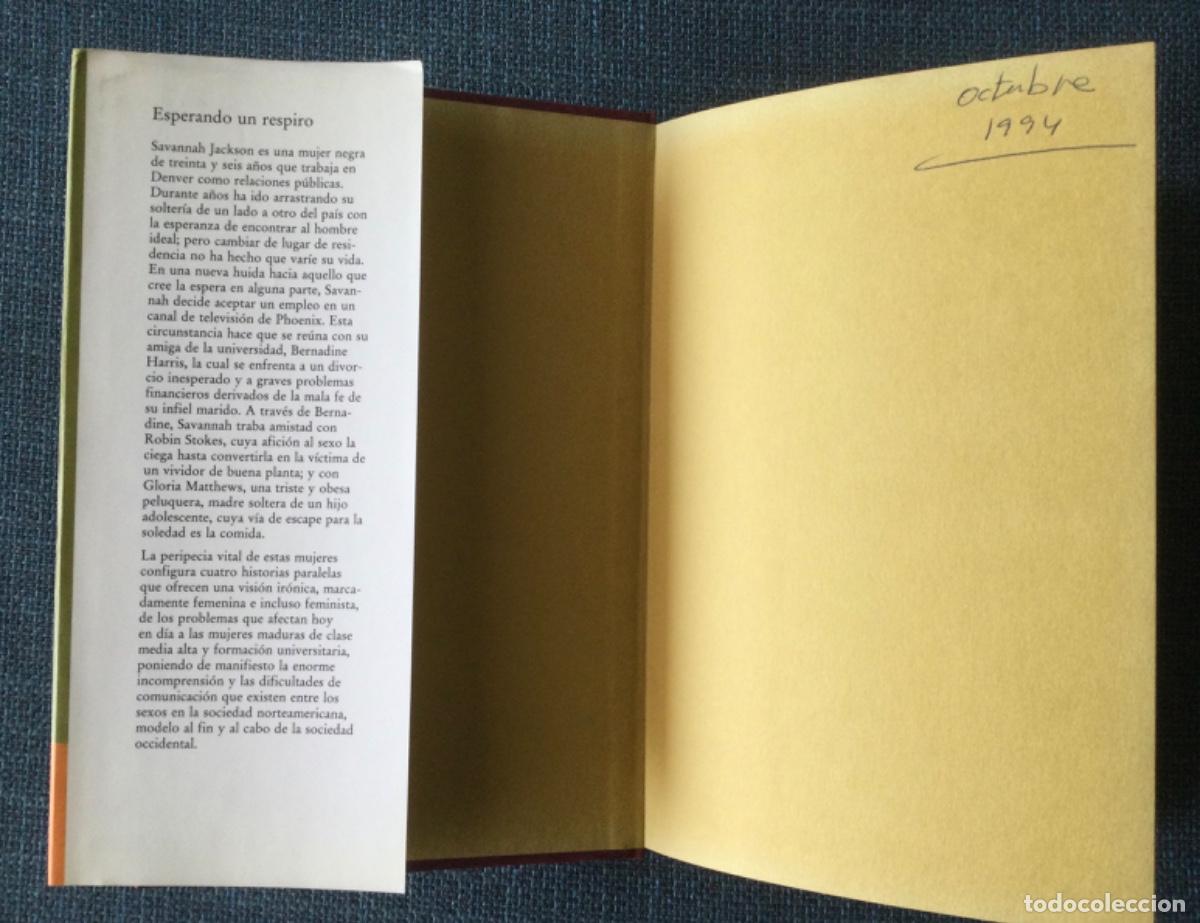 Esperando un respiro
Savannah Jackson es una mujer negra
de treinta y seis años que trabaja en
Denver como relaciones públicas.
Durante años ha ido arrastrando su
soltería de un lado a otro del país con
la esperanza de encontrar al hombre
ideal; pero cambiar de lugar de resi-
dencia no ha hecho que varíe su vida.
En una nueva huida hacia aquello que
cree la espera en alguna parte, Savan-
nah decide aceptar un empleo en un
canal de televisión de Phoenix. Esta
circunstancia hace que se reúna con su
amiga de la universidad, Bernadine
Harris, la cual se enfrenta a un divor-
cio inesperado y a graves problemas
financieros derivados de la mala fe de
su infiel marido. A través de Berna-
dine, Savannah traba amistad con
Robin Stokes, cuya afición al sexo la
ciega hasta convertirla en la víctima de
un vividor de buena planta; y con
Gloria Matthews, una triste y obesa
peluquera, madre soltera de un hijo
adolescente, cuya vía de escape para la
soledad es la comida.
La peripecia vital de estas mujeres
configura cuatro historias paralelas
que ofrecen una visión irónica, marca-
damente femenina e incluso feminista,
de los problemas que afectan hoy
en día a las mujeres maduras de clase
media alta y formación universitaria,
poniendo de manifiesto la enorme
incomprensión y las dificultades de
comunicación que existen entre los
sexos en la sociedad norteamericana,
modelo al fin y al cabo de la sociedad
occidental.
octubre
1994
todocoleccion